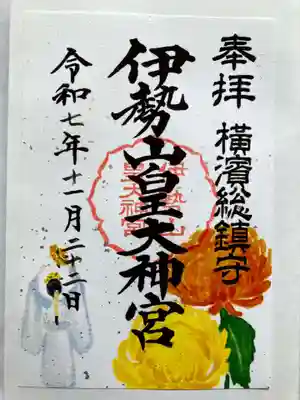 奉拝 横濱総鎮守
伊勢山皇大神宮
令和七年十一月二十二日
伊勢山
皇大神宮